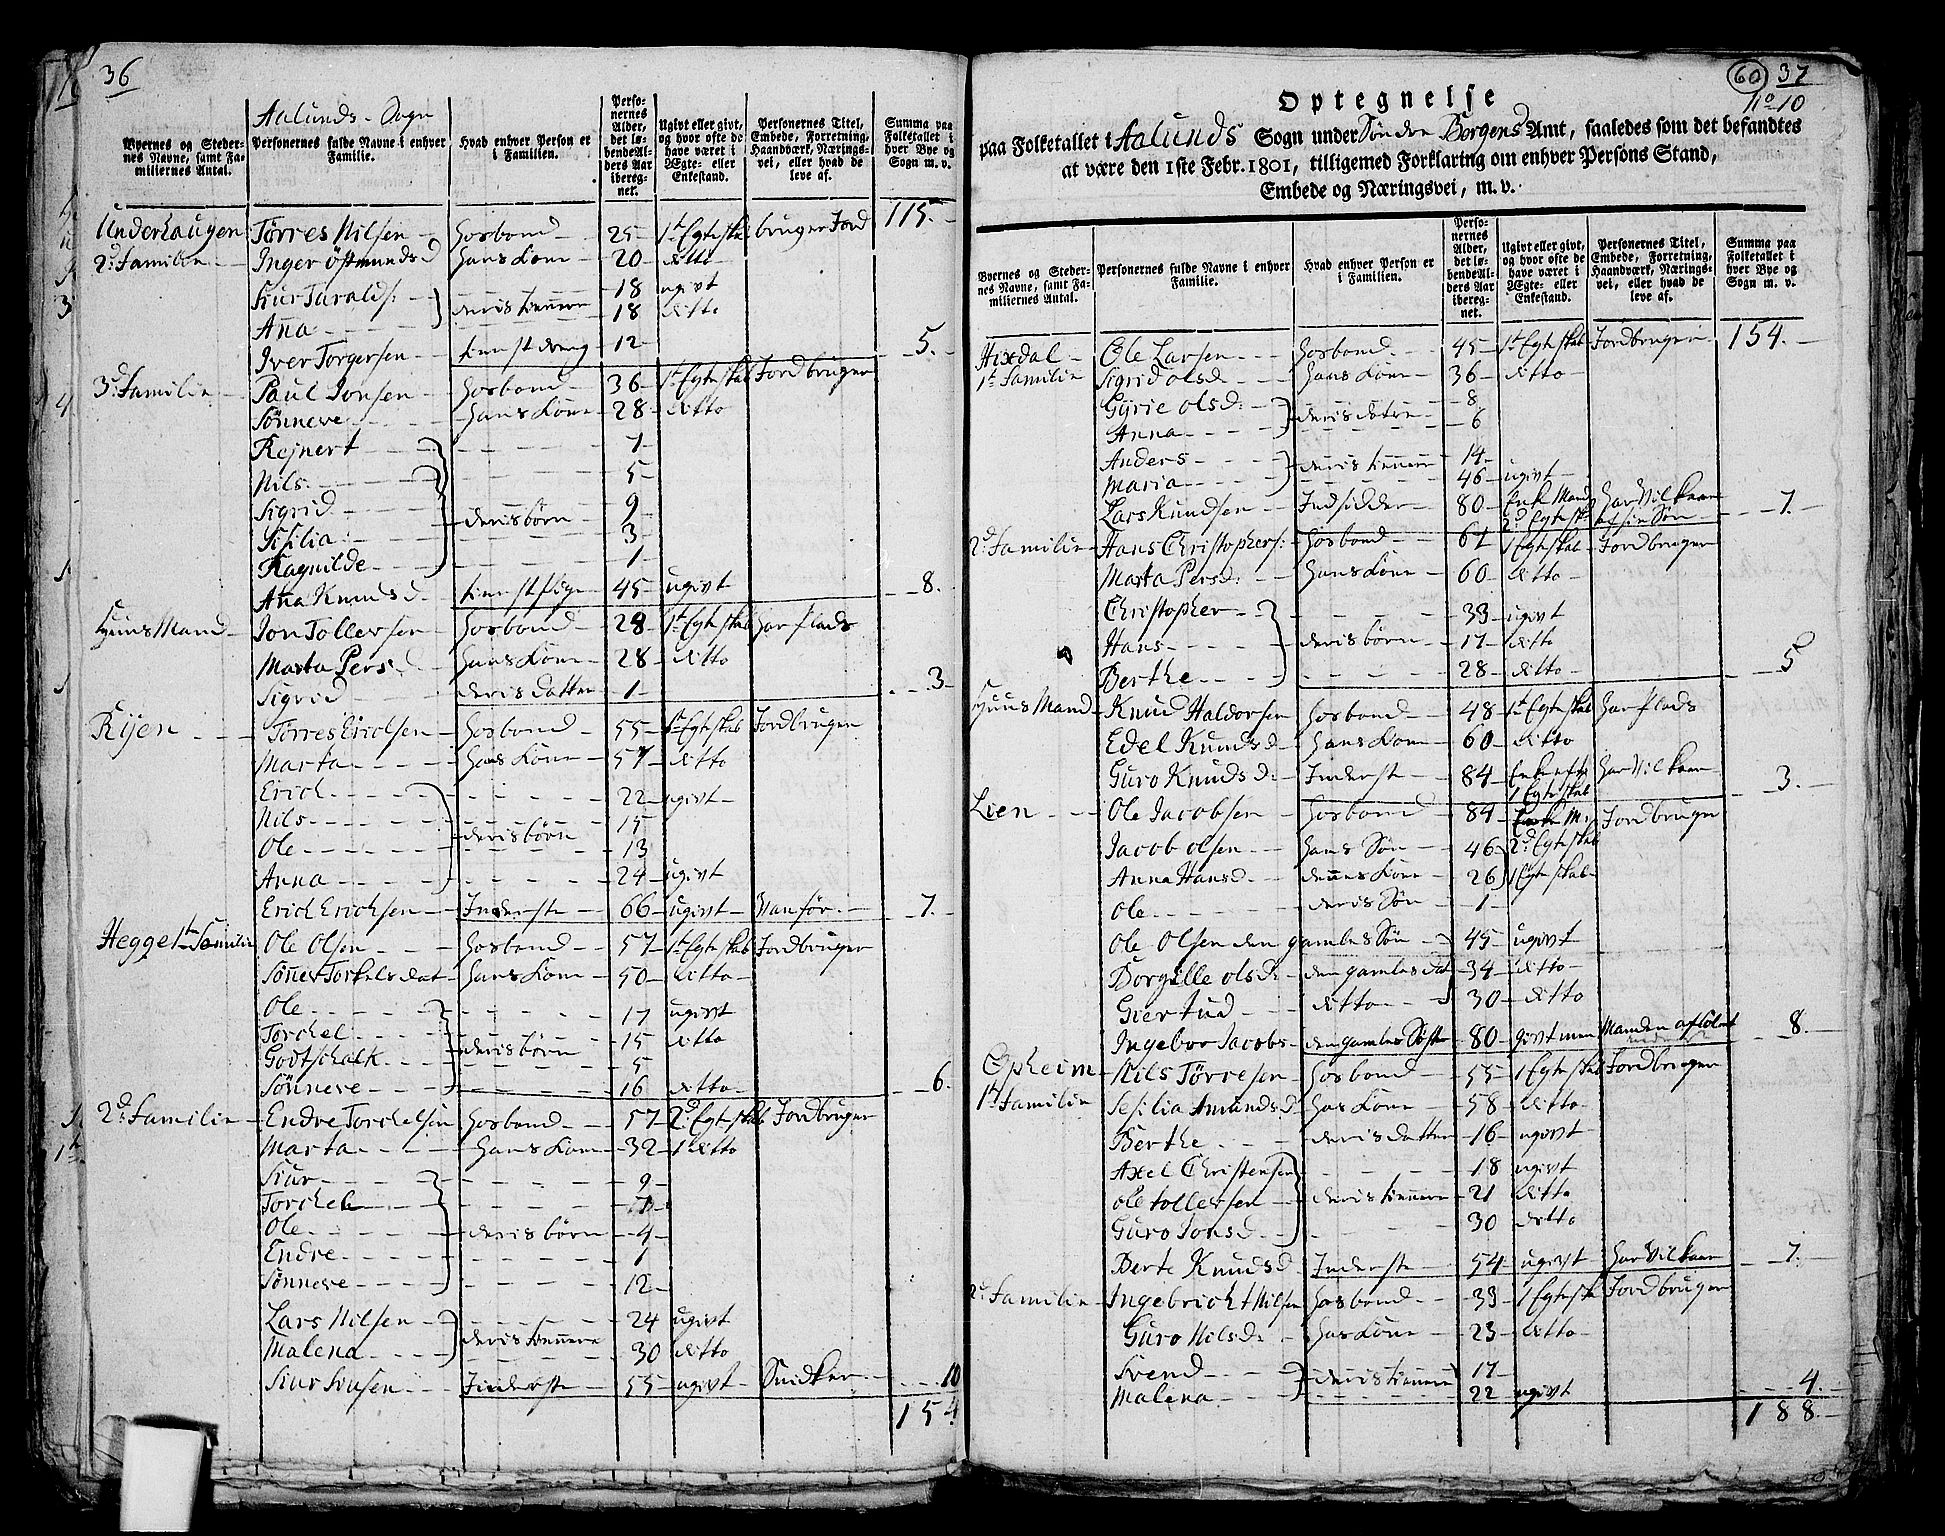 36
Aalunds - Sogn
Byernes og Steder-nes Navne, samt Fa-miliernes Antal. | Personernes fulde Navne i enhver Familie. | Hvad enhver Person er i Familien. | Perso-nernes Alder, det lø-bende Al-ders Aar ibereg-net. | Ugivt eller givt, og hvor ofte de have været i Ægte- eller Enkestand. | Personernes Titel, Embede, Forretning, Haandværk, Nærings-vei, eller hvad de leve af. | Summa paa Folketallet i hver Bye og Sogn m. v.
115.
Underhaugen Tørres Nilsen - Hosbond - 25 - 1te Egteskab bruger Jord
2d Familien - Inger Østmundsd Hans Kone - 20 - ditto
Siur Taralds: - 18 ugivt
Anna - - - deris tienere 18 ditto
Iver Torgersen - tienistdreng - 12 - 5.
3d Familie - Paul Jonsen - Hosbond - 36 - 1te Egteskab Jordbruger
Sønneve - - - Hans Kone - 28 - ditto
Rejnert - - - 7
Nils - - - 5
Sigrid - - - 9
Sesilia - - deris børn - 3
Ragnilde - - - 1
Anna Knudsd - tienistpige - 45 - ugivt - 8.
HuusMand - Jon Tollefsen - Hosbond - 28 - 1te Egteskab har plads
Marta Persd - Hans Kone - 28 - ditto
Sigrid - deris datter - 1 - 3
Rijen - - - Tørres Ericksen - Hosbond - 55 - 1te Egteskab Jordbruger
Marta - - - Hans Kone - 57 - ditto
Erick - - - 22 - ugivt -
Nils - - - 15
Ole - - - deris børn - 13
Anna - - - 24 - ugivt
Erick Ericksen - Inderste - 66 - ugivt - Vanfør - 7.
Hegge 1te Familie Ole Olsen - - Hosbond - 57 - 1te Egteskab Jordbruger
Sønnev Torkelsdat - Hans Kone - 50 - ditto -
Ole - - - 17 ugivt
Torchel - - - 15 ditto
Godtschalk - - deris børn - 5
Sønneve - - - 16 ditto - 6.
2d Familie - Endre Torchelsen Hosbond - 57 2d Egteskab Jordbruger
Marta - - - Hans Kone - 32 - 1 ditto
Siur - - - 9 -
Torchel - - - 7 -
Ole - - - deris børn - 4 -
Endre - - - 1
Sønneve - - - 12 -
Lars Nilsen - 24 ugivt
Malena - - - deris tienere 30 ditto
Siur Siusen - - Inderste - 55 - ugivt - Snidker - 10
154
60 37
No 10
Optegnelse
paa Folketallet i Aalunds Sogn under Søndre Bergens Amt, saaledes som det befandtes
at være den 1ste Febr. 1801, tilligemed Forklaring om enhver Persons Stand,
Embede og Næringsvei, m. v.
Byernes og Steder-nes Navne, samt Fa-miliernes Antal. | Personernes fulde Navne i enhver Familie. | Hvad enhver Person er i Familien. | Perso-nernes Alder, det lø-bende Al-ders Aar ibereg-net. | Ugivt eller givt, og hvor ofte de have været i Ægte- eller Enkestand. | Personernes Titel, Embede, Forretning, Haandværk, Nærings-vei, eller hvad de leve af. | Summa paa Folketallet i hver Bye og Sogn m. v.
Hixdal - Ole Larsen - - Hosbond - 45 - 1te Egteskab Jordbruger 154.
1te Familie Sigrid Olsd - - Hans Kone - 36 - ditto
Gyrie Olsd: - 8
Anna - - - deris døtre - 6
Anders - - - 14 -
Maria - - - deris tienere 46 - ugivt
Lars Knudsen - Indsidder - 80 - Enke Mand 2d Egteskab har Vilkaar af sin Søn - 7.
2d Familie - Hans Christophers: Hosbond - 61 1 Egteskab - Jordbruger
Marta Persd: - Hans Kone - 60 - ditto -
Christopher - - - 33 ugivt
Hans - - - deris børn - 17 - ditto
Berthe - - - 28 - ditto - 5
HuusMand - Knud Haldorsen Hosbond - 48 - 1te Egteskab har plads
Edel Knudsd - Hans Kone - 60 - ditto
Guro Knudsd: - Inderste - 84 - Enke efter 1 Egteskab har Vilkaar - 3.
Lien - - Ole Jacobsen - Hosbond - 84 - Enke M: 2d Egteskab Jordbruger
Jacob Olsen - - Hans Søn - 46
Anna Hansd - - dennes Kone - 26 1 Egteskab -
Ole - - - deris Søn - 1
Ole Olsen den gamles Søn - 45 - ugivt
Borgille Olsd: - den gamles dat - 34 - ditto -
Giertrud - - ditto - 30 - ditto
Ingebor Jacobs - den gamles Søster 80 - givt men Manden - 8.
Opheim - Nils Tørresen - Hosbond - 55 - 1 Egteskab Jordbruger
1te Familie Sesilia Amundsd: Hans Kone - 58 - ditto -
Berthe - - - deris datter - 16 - ugivt
Axel Christensen - 18 ugivt
Ole Tollefsen - - deris tienere - 21 ditto
Guro Jonsd - - 30 ditto
Berte Knudsd - Inderste - 54 - ugivt har Vilkaar - 7.
2d Familie - Ingebricht Nilsen Hosbond - 33 - 1 Egteskab Jordbruger
Guro Nilsd: - Hans Kone - 23 - ditto -
Svend - - - 17 -
Malena - - - deris tienere 22 ugivt - 4.
188.